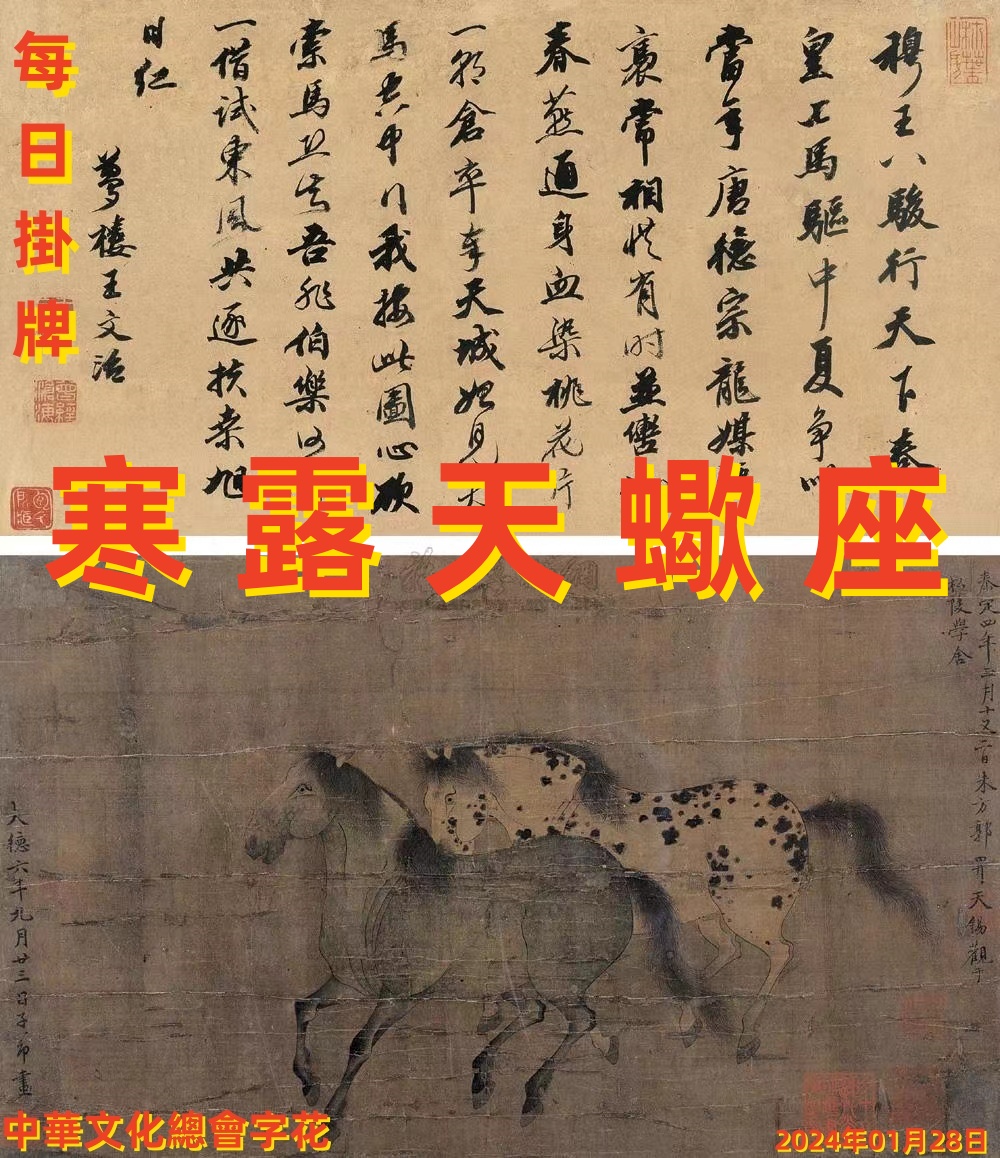 每日掛牌
穆王八駿行天下秦
皇七馬驅中夏爭如
當年唐德宗龍媒
常相從有時並轡
春蕪遍身血染桃花片
一朝倉卒奉天城
我披此圖心欲
索馬且 吾非伯樂何
一借試東風共逐扶桑旭
日紅
夢樓王文治
寒露天蠍座
泰定四年三月十又二日朱方郭畀天錫觀于
松陵學舍
大德六年九月廿三日子昂畫
中華文化總會字花
2024年01月28日